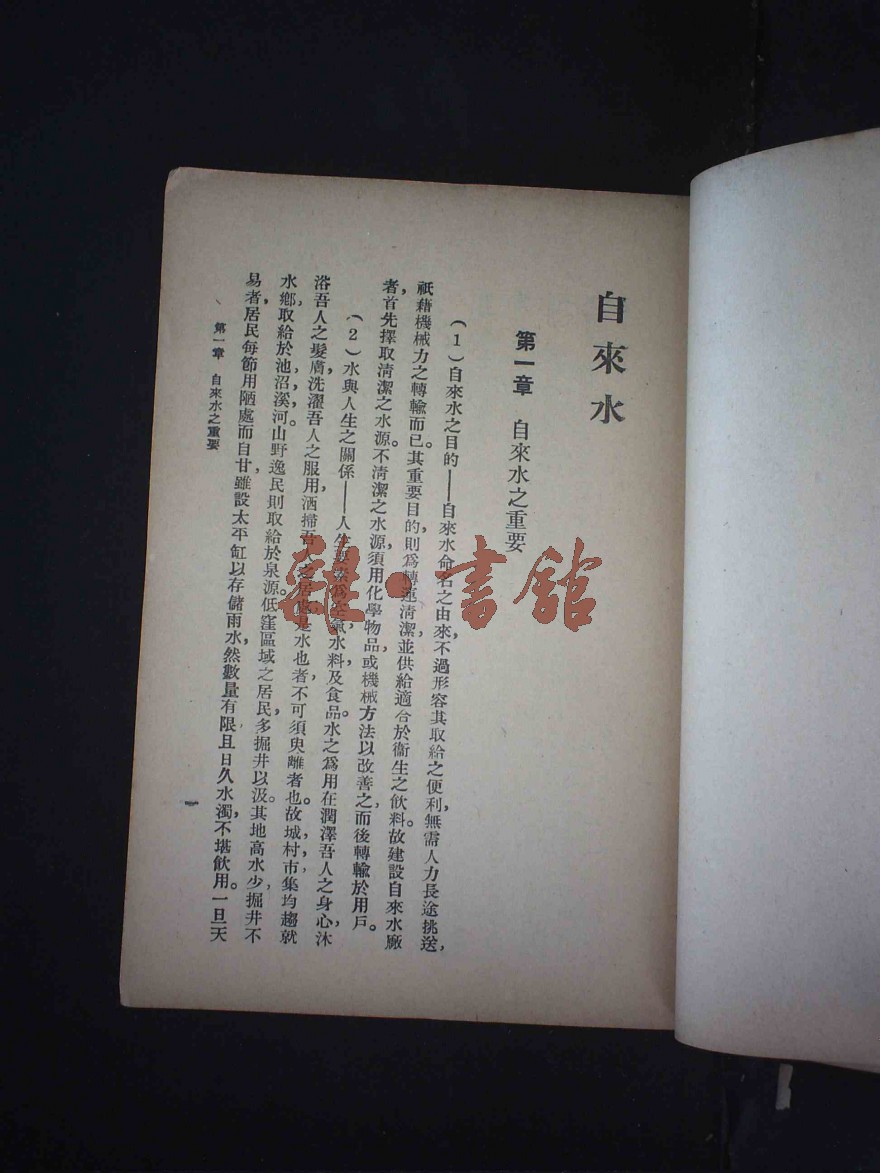 自來水
第一章　自來水之重要
（1）自來水之目的——自來水命名之由來，不過形容其取給之便利，無需人力長途挑送，
祇藉機械力之轉輸而已。其重要目的，則爲轉運清潔，並供給適合於衞生之飲料。故建設自來水廠
者，首先擇取清潔之水源，不清潔之水源，須用化學物品，或機械方法以改善之，而後轉輸於用戶。
（2）水與人生之關係——人生要素，爲空氣，水料，及食品。水之爲用，在潤澤吾人之身心，沐
浴吾人之髮膚，洗濯吾人之服用，洒掃吾人之居處，是水也者，不可須臾離者也。故城村市集，均趨就
水鄉，取給於池，沼，溪，河，山野逸民，則取給於泉源。低窪區域之居民，多掘井以汲。其地高水少，掘井不
易者，居民每節用陋處而自甘，雖設太平缸以存儲雨水，然數量有限，且日久水濁，不堪飲用。一旦天
第一章　自來水之重要
雜·書館